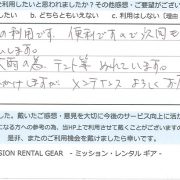 利用したいと思われましたか？その感想・ご要望がござい
たい　b. どちらともいえない　c. 利用はしない（理由
の利用です。便利ですので次回も
します。
時の為、テント等 ぬれています。
かけしますが メンテナンス よろしく
した。戴いたご感想・意見を大切に今後のサービス向上に活か
になる方への参考の為、当HP上で利用させて戴くことがございますの
是非、またのご利用機会を戴けましたら幸いです。
SION RENTAL GEAR - ミッション・レンタルギア -